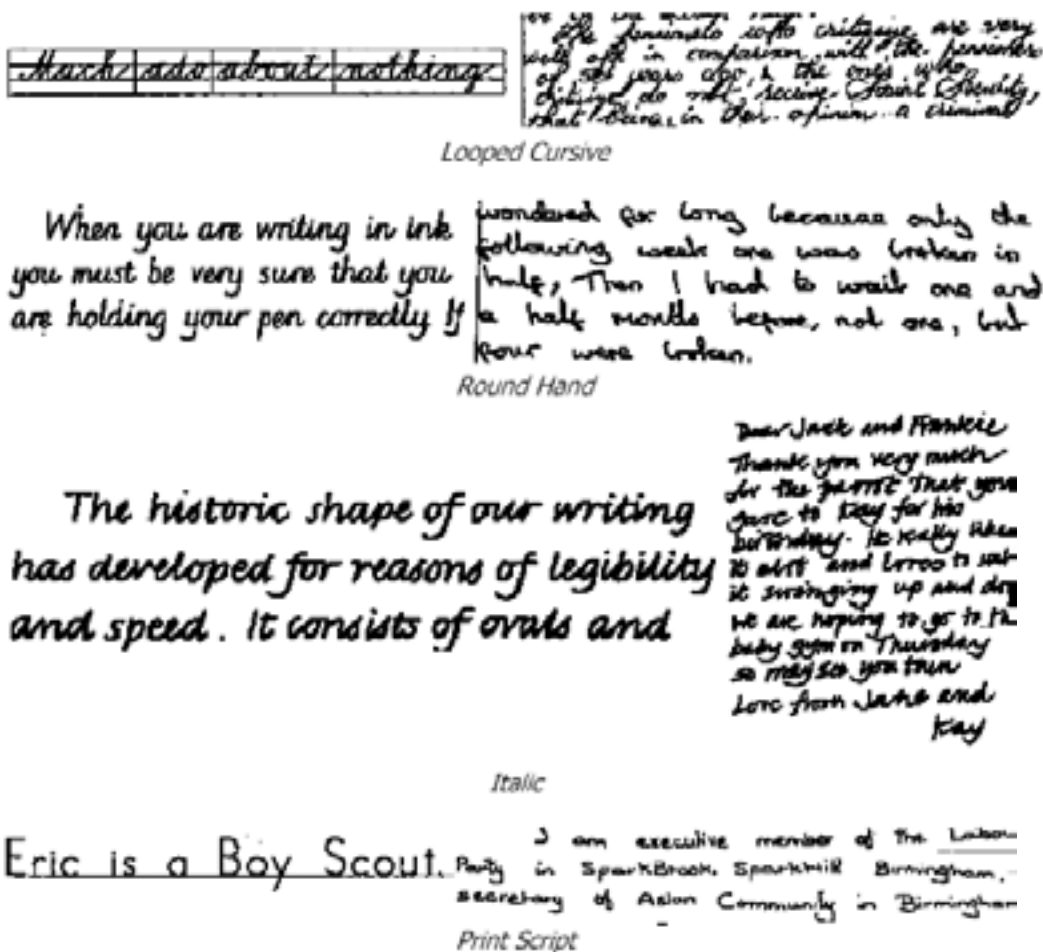 Much ado about nothing
the pensioners who criticise are very
well off in comparison with the pensioners
of years ago, & the ones who
do not receive Social Security,
that being in their opinion a criminal
Looped Cursive
When you are writing in ink
you must be very sure that you
are holding your pen correctly If
wondered for long because only the
following week one was broken in
half, Then I had to wait one and
a half months before, not one, but
four were broken.
Round Hand
The historic shape of our writing
has developed for reasons of legibility
and speed. It consists of ovals and
Dear Jack and Frankie
Thank you very much
for the parrot that you
gave to Kay for his
birthday. He really likes
it and loves to
it swinging up and
we are hoping to go to th
baby gym on Thursday
so may see you then
Love from Jane and
Kay
Italic
Eric is a Boy Scout.
I am executive member of The Labou
Party in SparkBrook, Sparkhill Birmingham,
secretary of Asian Community in Birmingham
Print Script